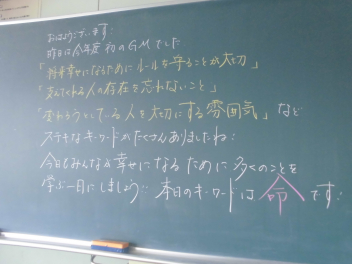 おはようございます:
昨日は今年度初のGMでした
「将来幸せになるためにルールを守ることが大切」
「支えてくれる人の存在を忘れないこと」
「変わろうとしている人を大切にする雰囲気」など
ステキなキーワードがたくさんありましたね:
今日もみんなが幸せになるために多くのことを
学ぶ一日にしましょう:本日のキーワードは命です: